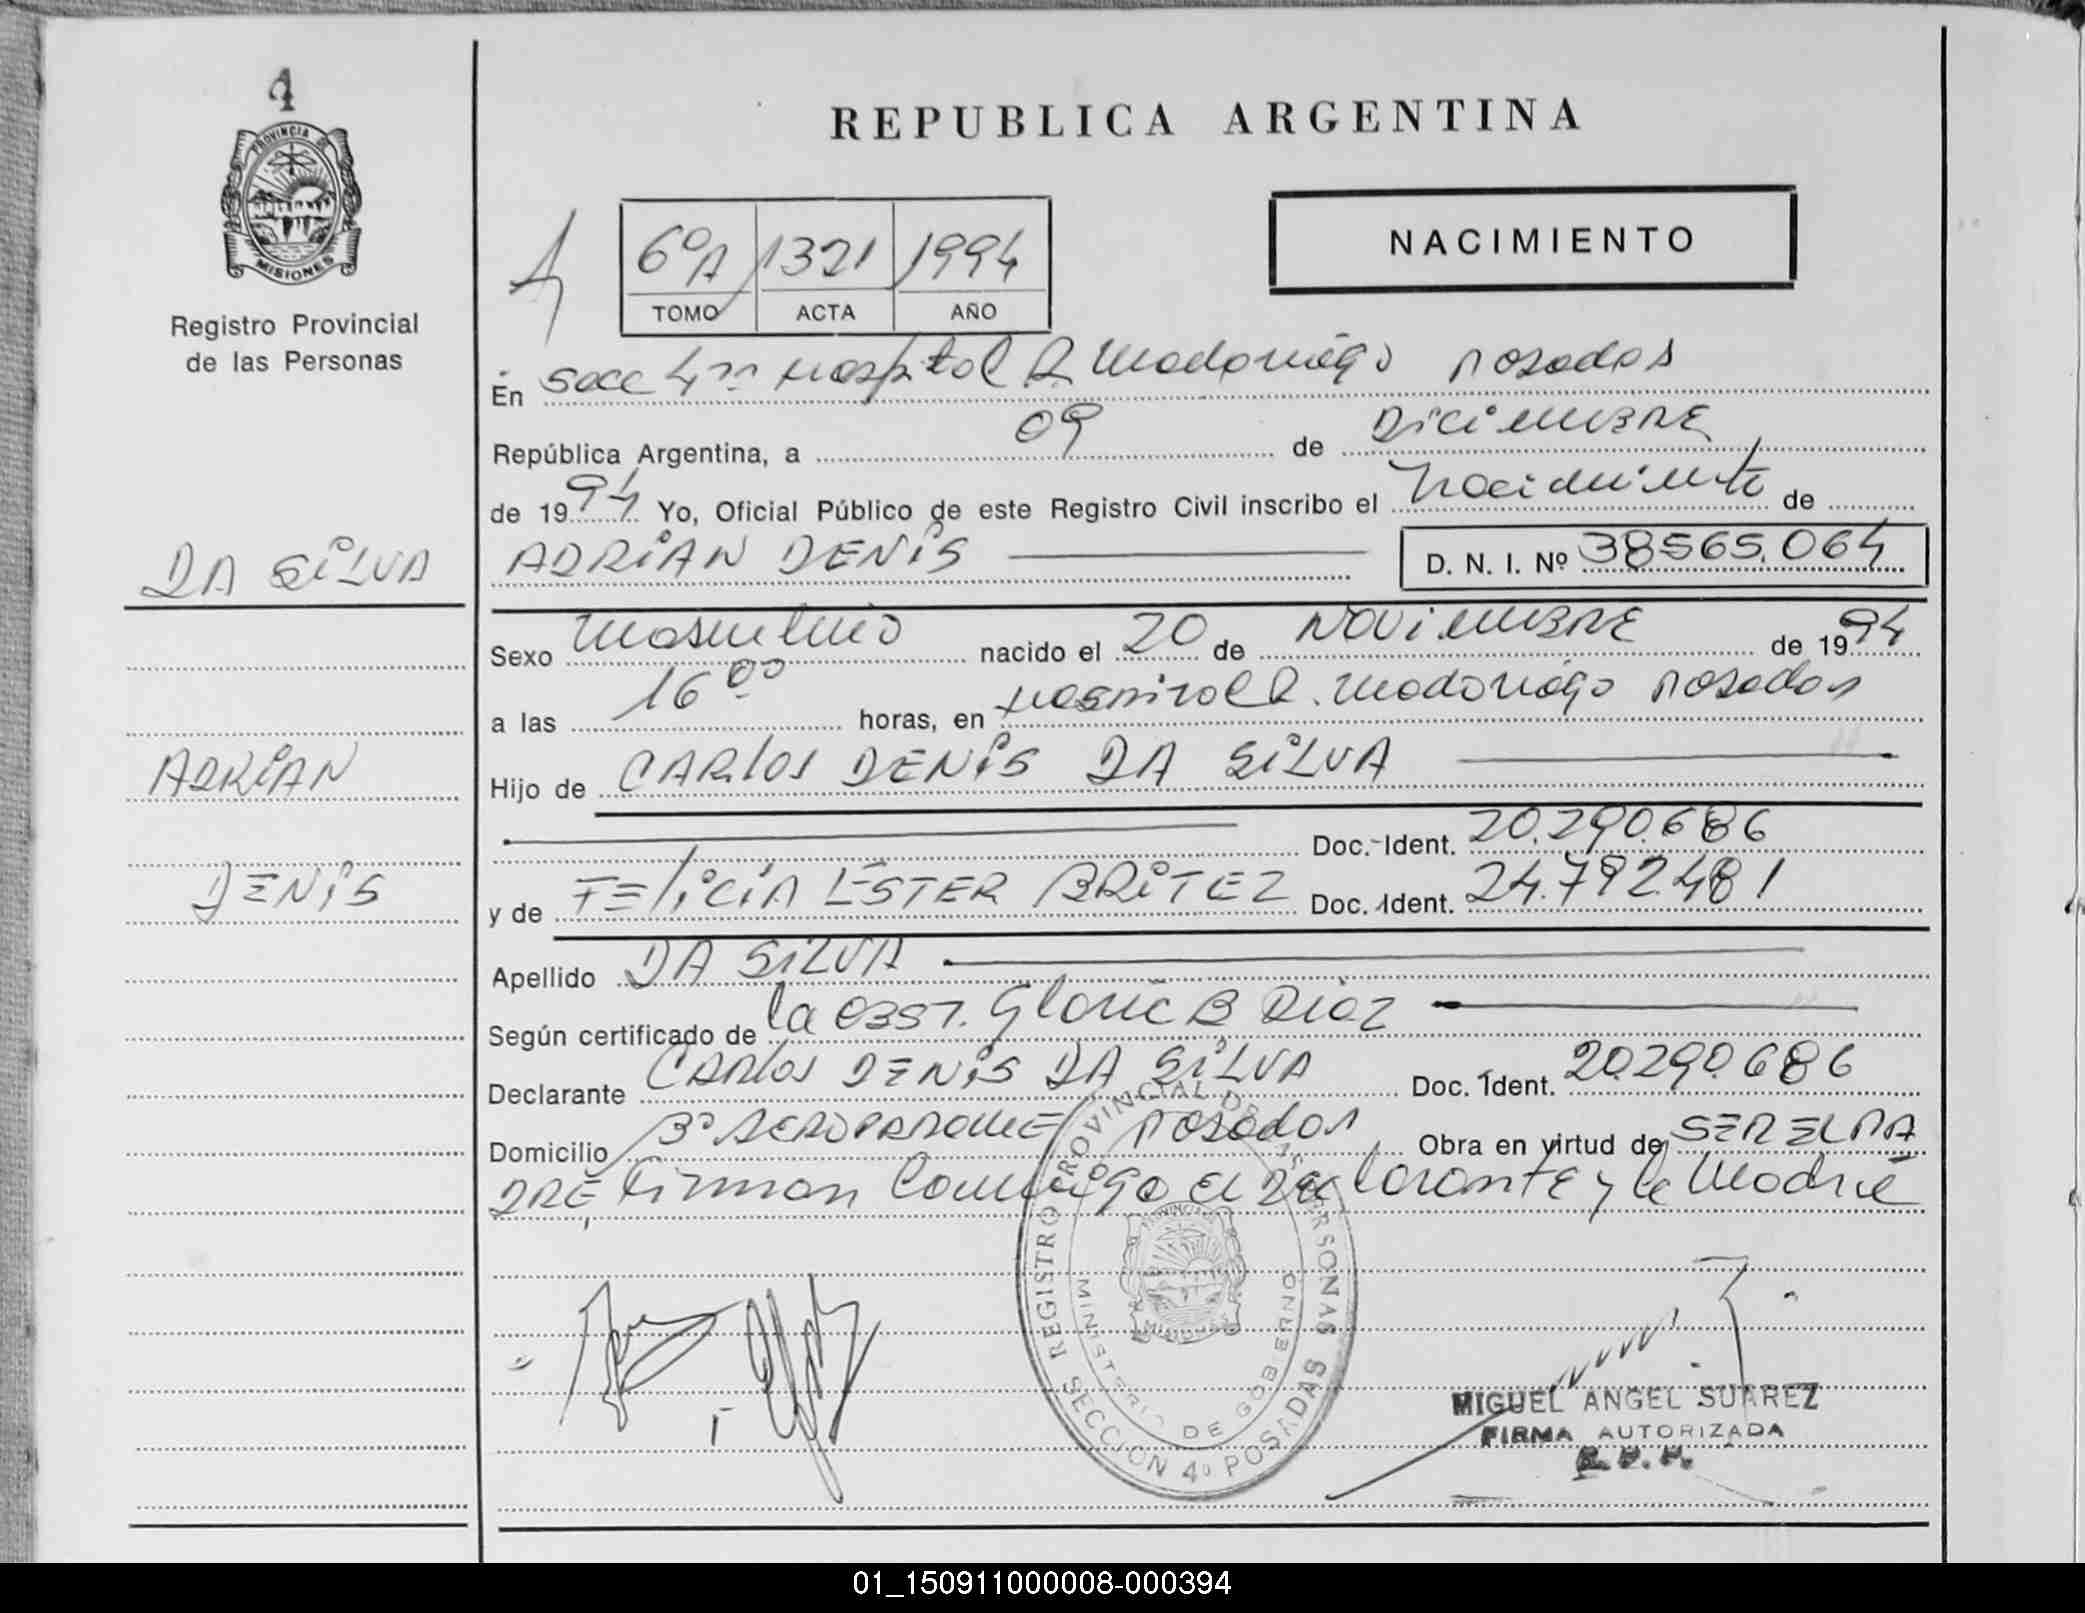 4
PROVINCIA DE
MISIONES
Registro Provincial
de las Personas
REPUBLICA ARGENTINA
6ºA 1321 1994
TOMO ACTA AÑO
NACIMIENTO
En Secc 4ta Hospital R. Madariaga Posadas
República Argentina, a 09 de Diciembre
de 1994 Yo, Oficial Público de este Registro Civil inscribo el Nacimiento de
DA SILVA
ADRIAN DENIS D. N. I. Nº 38565.064
Sexo Masculino nacido el 20 de Noviembre de 1994
a las 16 00 horas, en Hospital R. Madariaga Posadas
ADRIAN
Hijo de CARLOS DENIS DA SILVA
Doc. Ident. 20.290.686
DENIS
y de FELICIA ESTER BRITEZ Doc. Ident. 24.792.481
Apellido DA SILVA
Según certificado de la Obst. Gloria B Diaz
Declarante CARLOS DENIS DA SILVA Doc. Ident. 20.290.686
Domicilio Bº AEROPARQUE Posadas Obra en virtud de SER EL PA
DRE, Firman Conmigo el Declarante y la Madre
REGISTRO PROVINCIAL DE LAS PERSONAS
MINISTERIO DE GOBIERNO
SECCION 4º POSADAS
PROVINCIA
MISIONES
MIGUEL ANGEL SUAREZ
FIRMA AUTORIZADA
R.P.P.
01_150911000008-000394